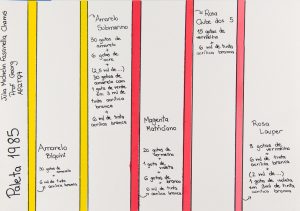 Paleta 1985
Prof. Georg
Amarelo
Biquíni
30 gotas de
amarelo
+
6 ml de tinta
acrílica branca
Amarelo
Submarino
30 gotas de
amarelo
+
6 gotas de
ocre
+
(2,5 ml de ...)
30 gotas de
amarelo com
1 gota de verde
em 3 ml de
tinta acrílica
branca
+
6 ml de tinta
acrílica branca
Magenta
20 gotas de
vermelho
+
1 gota de
+
6 gotas de
branco
6 ml de tinta
acrílica branca
Rosa
Clube dos 5
15 gotas de
vermelho
+
6 ml de tinta
acrílica branca
Rosa
Lauper
8 gotas de
vermelho
6 ml de tinta
acrílica branca
+
(2 ml de ...)
1 gota de violeta
em 3ml de tinta
acrílica branca